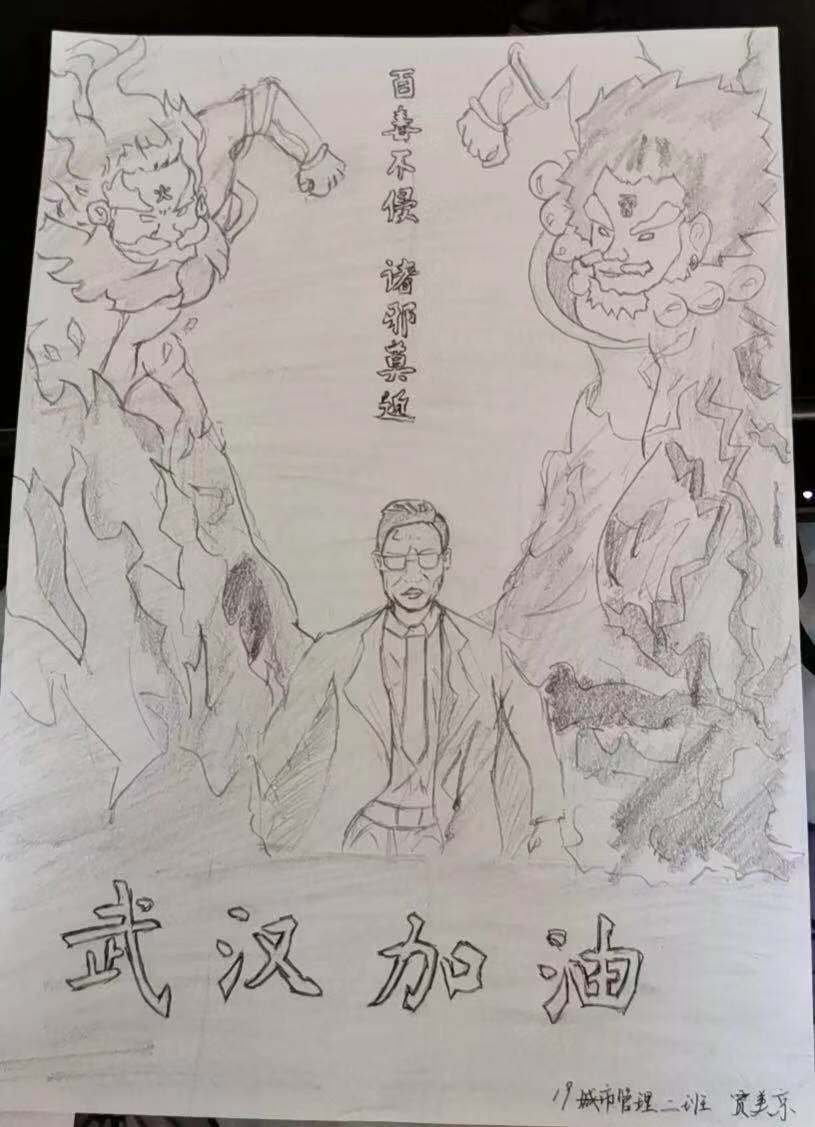 百毒不侵 诸邪莫近
火
武汉加油
19城市管理二班 贾美